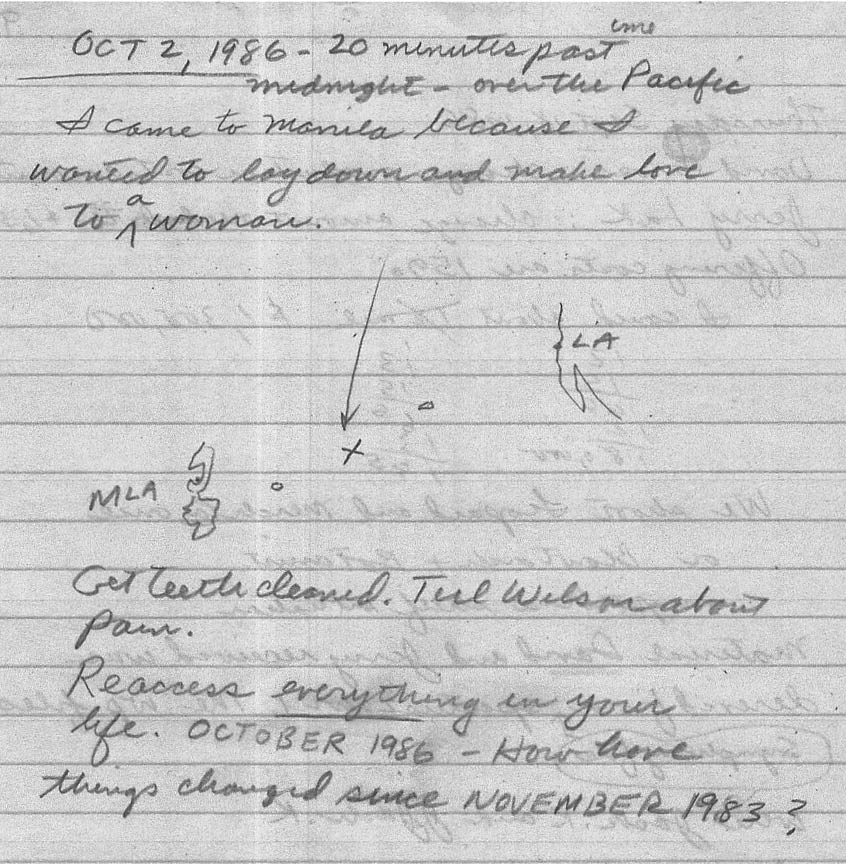 ime
OCT 2, 1986 - 20 minutes past
midnight - over the Pacific
I came to Manila because I
wanted to lay down and make love
to a woman.
LA
MLA
Get teeth cleaned. Tell Wilson about
pain.
Reaccess everything in your
life. OCTOBER 1986 - How have
things changed since NOVEMBER 1983?